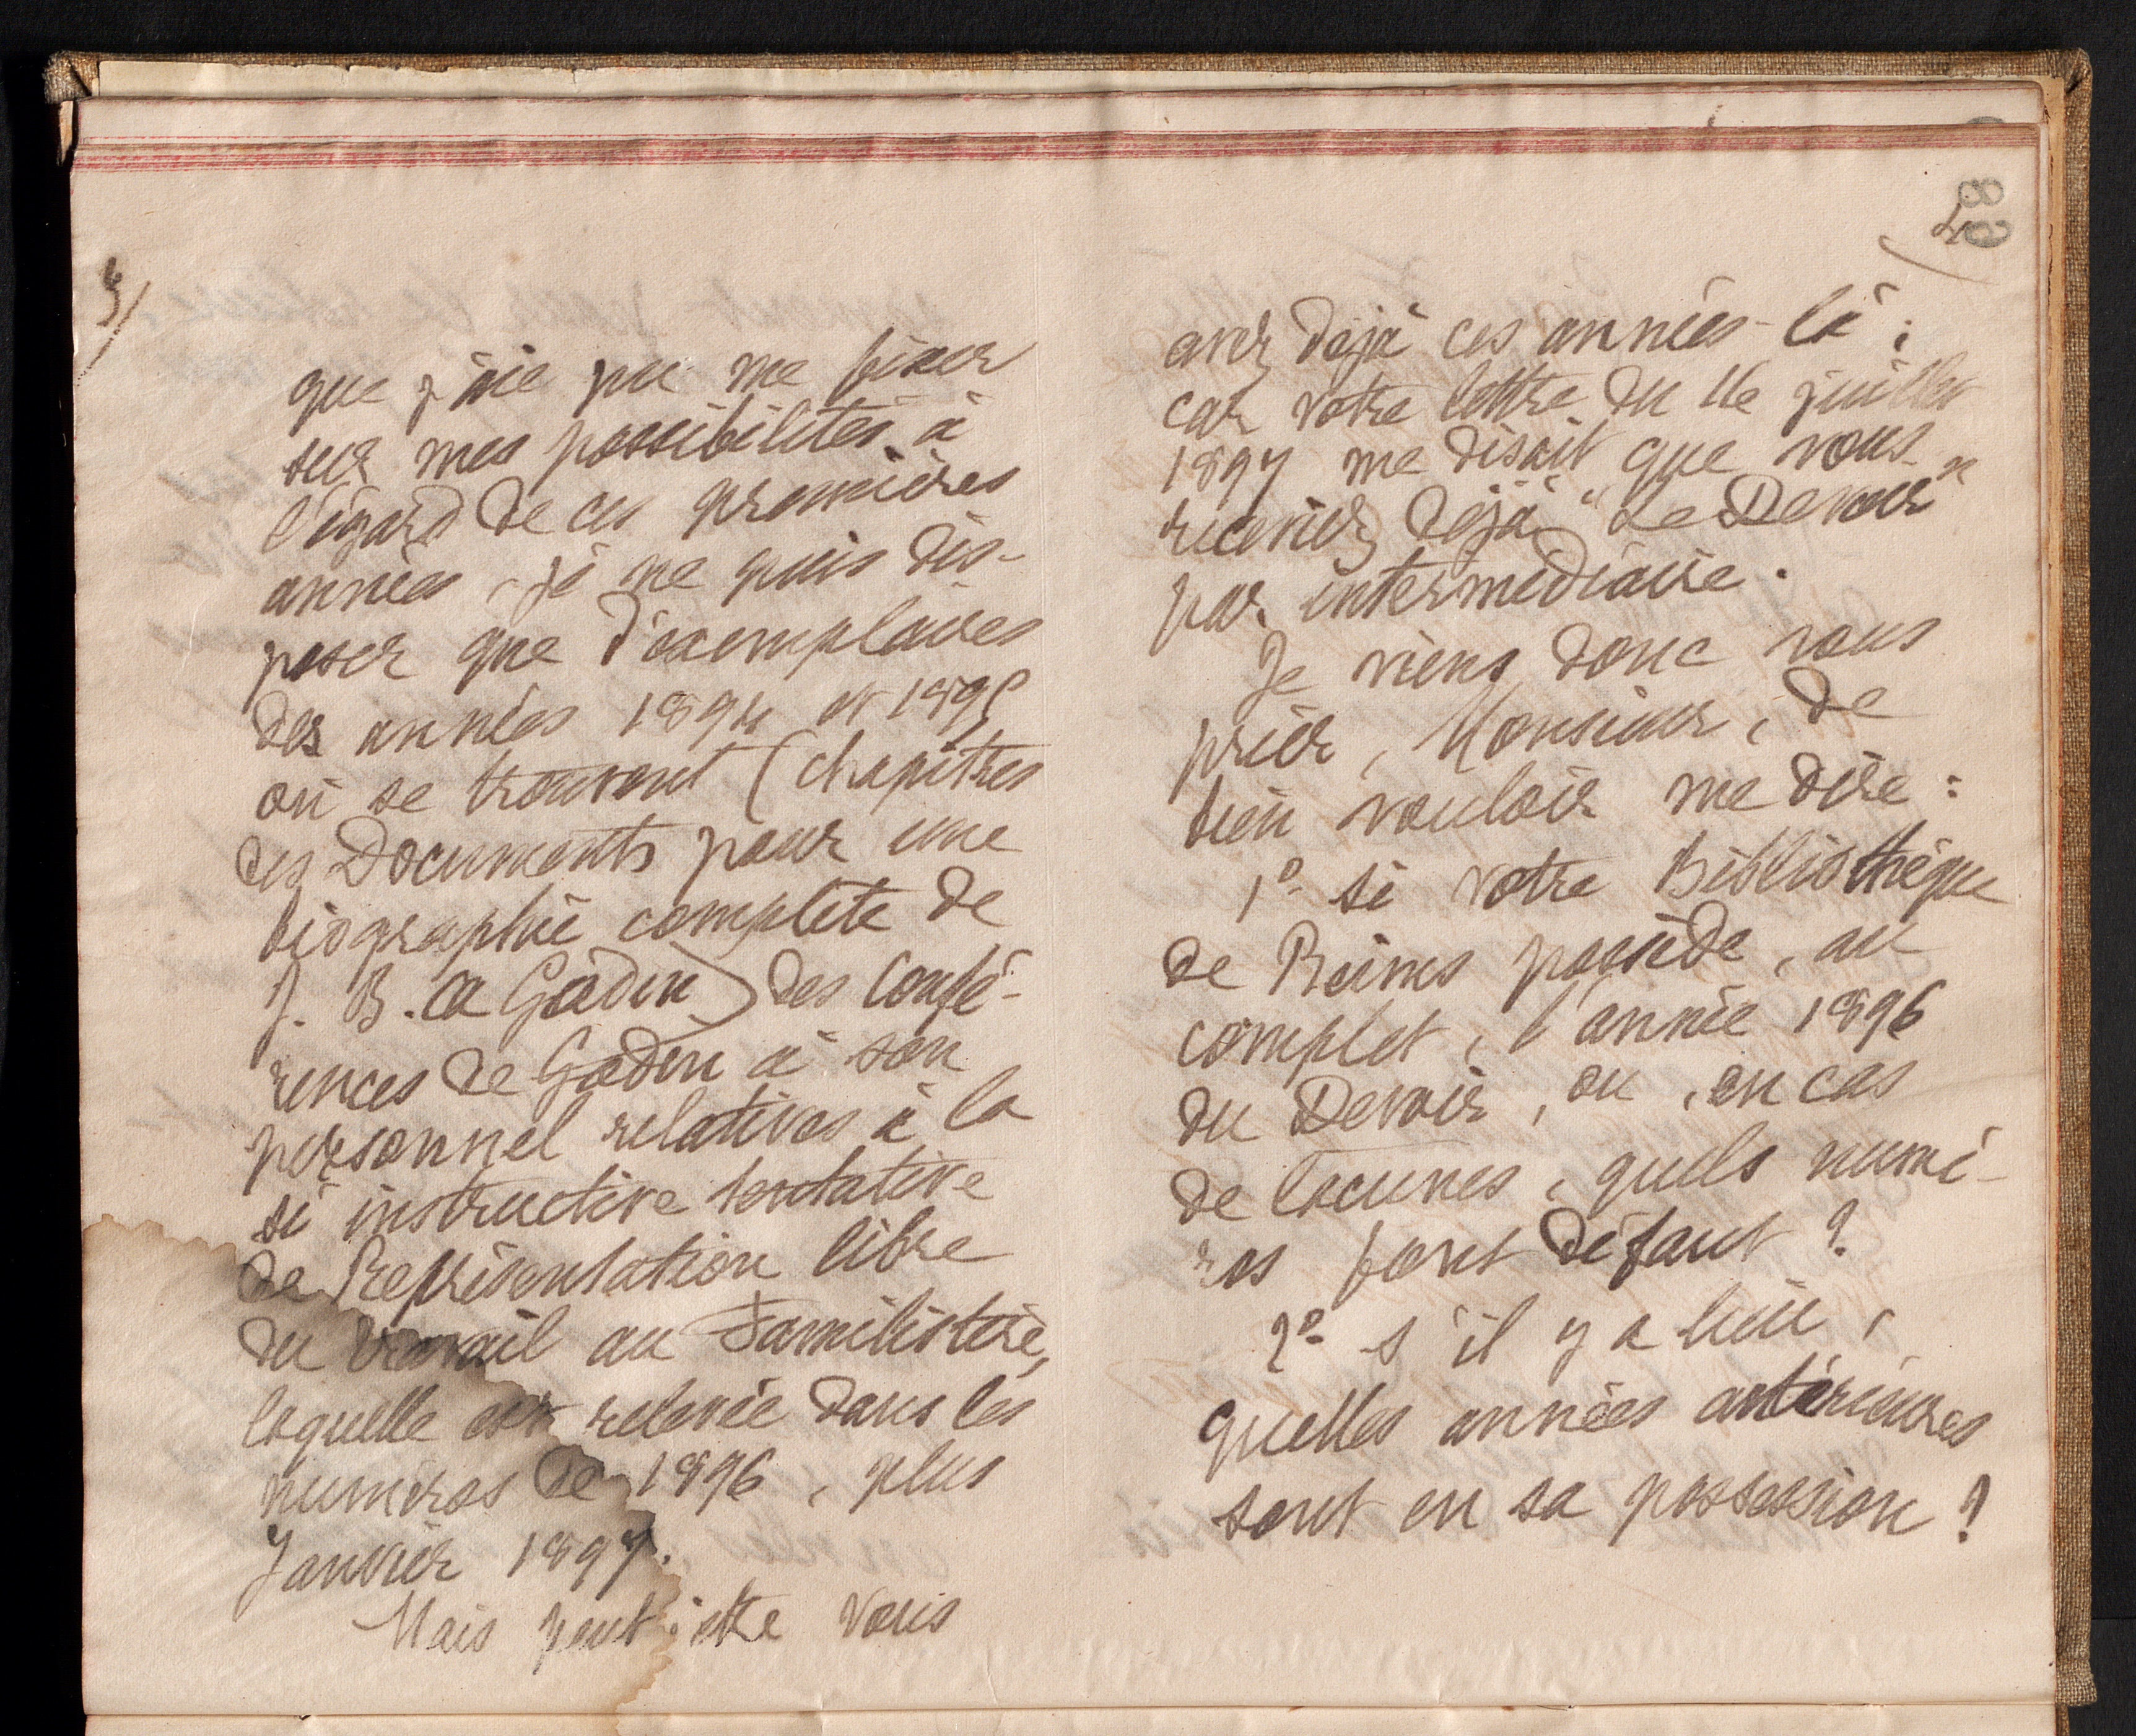 3/
que j'aie pu me fixer
sur mes possibilités à
l'égard de ces premières
années, je ne puis dis-
poser que d'exemplaires
des années 1894 et 1895
où se trouvent (chapitres
des Documents pour une
biographie complète de
J. B. A Godin) des Confé-
rences de Godin à son
personnel relatives à la
si instructive tentative
de Représentation libre
du travail au Familistère,
laquelle est relevée dans les
numéros de 1896, plus
Janvier 1897.
Mais peut-être vous
89
4
avez déjà ces années-là ;
car votre lettre du 16 juillet
1897 me disait que vous
receviez déjà "Le Devoir"
par intermédiaire.
Je viens donc vous
prier, Monsieur, de
bien vouloir me dire :
1º si votre Bibliothèque
de Reims possède, au
complet, l'année 1896
du Devoir, ou, en cas
de lacunes, quels numé-
ros font défaut ?
2º s'il y a lieu,
quelles années antérieures
sont en sa possession ?